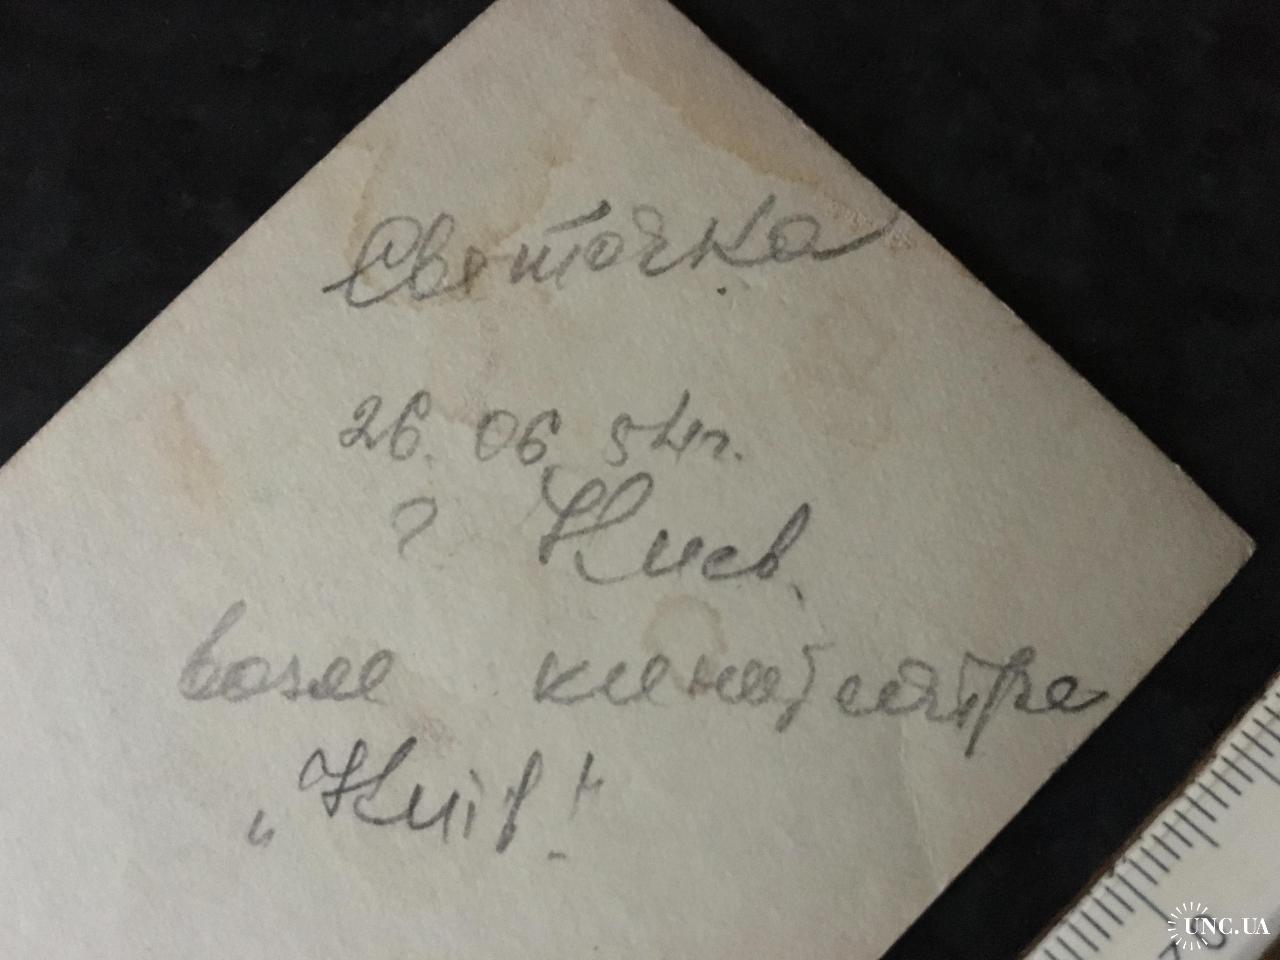 Светочка
26. 06. 54г.
г Киев.
возле кинотеатра
„Київ."
UNC.UA